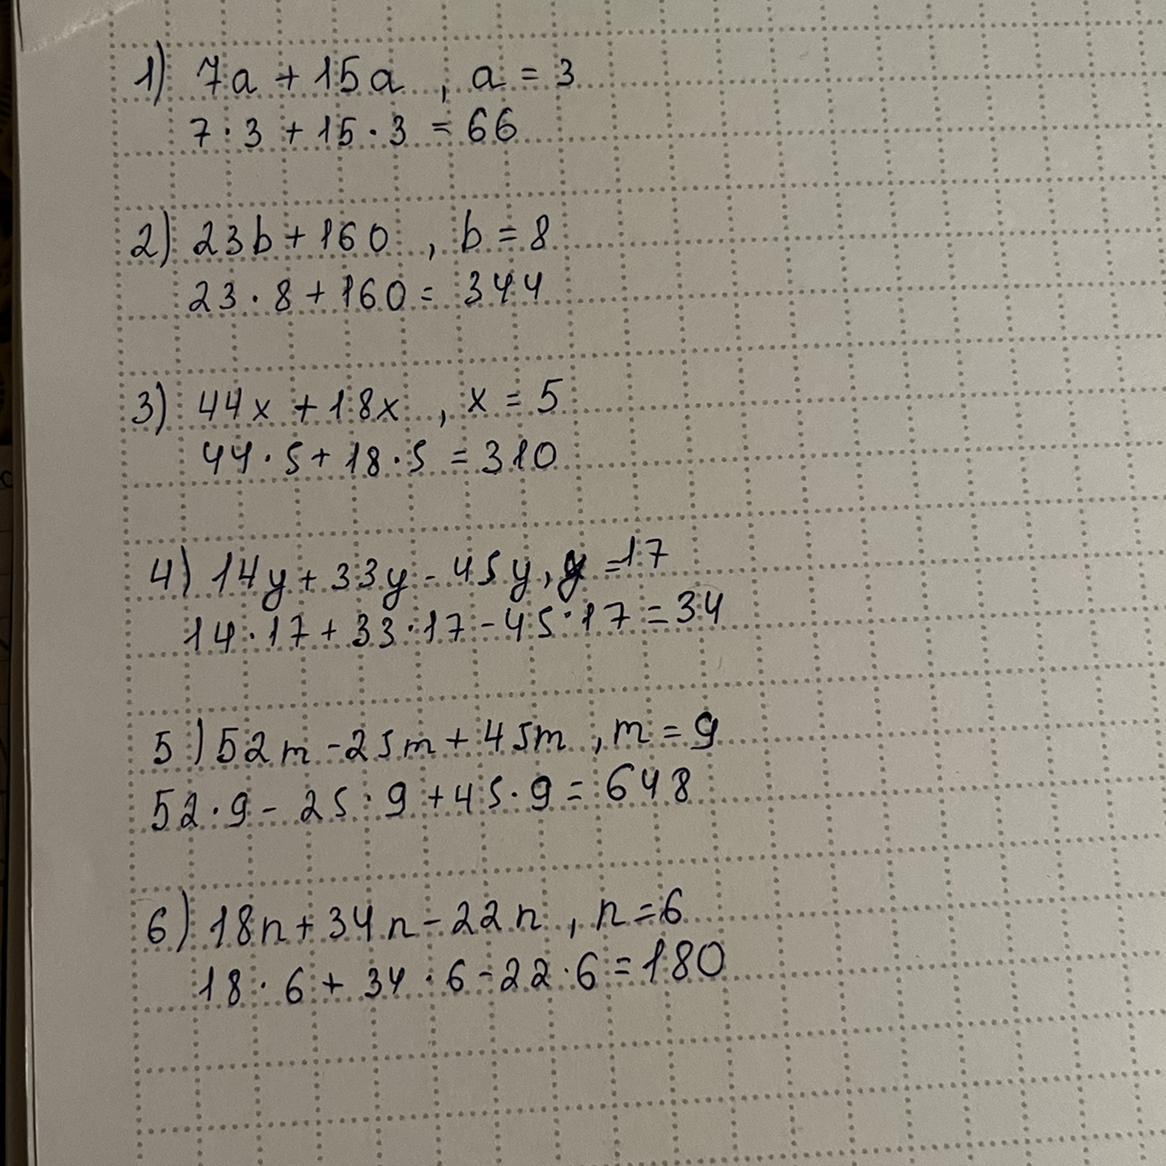 1) 7a + 15a , a = 3
7 · 3 + 15 · 3 = 66
2) 23b + 160 , b = 8
23 · 8 + 160 = 344
3) 44x + 18x , x = 5
44 · 5 + 18 · 5 = 310
4) 14y + 33y - 45y, y = 17
14 · 17 + 33 · 17 - 45 · 17 = 34
5) 52m - 25m + 45m , m = 9
52 · 9 - 25 · 9 + 45 · 9 = 648
6) 18n + 34n - 22n , n = 6
18 · 6 + 34 · 6 - 22 · 6 = 180